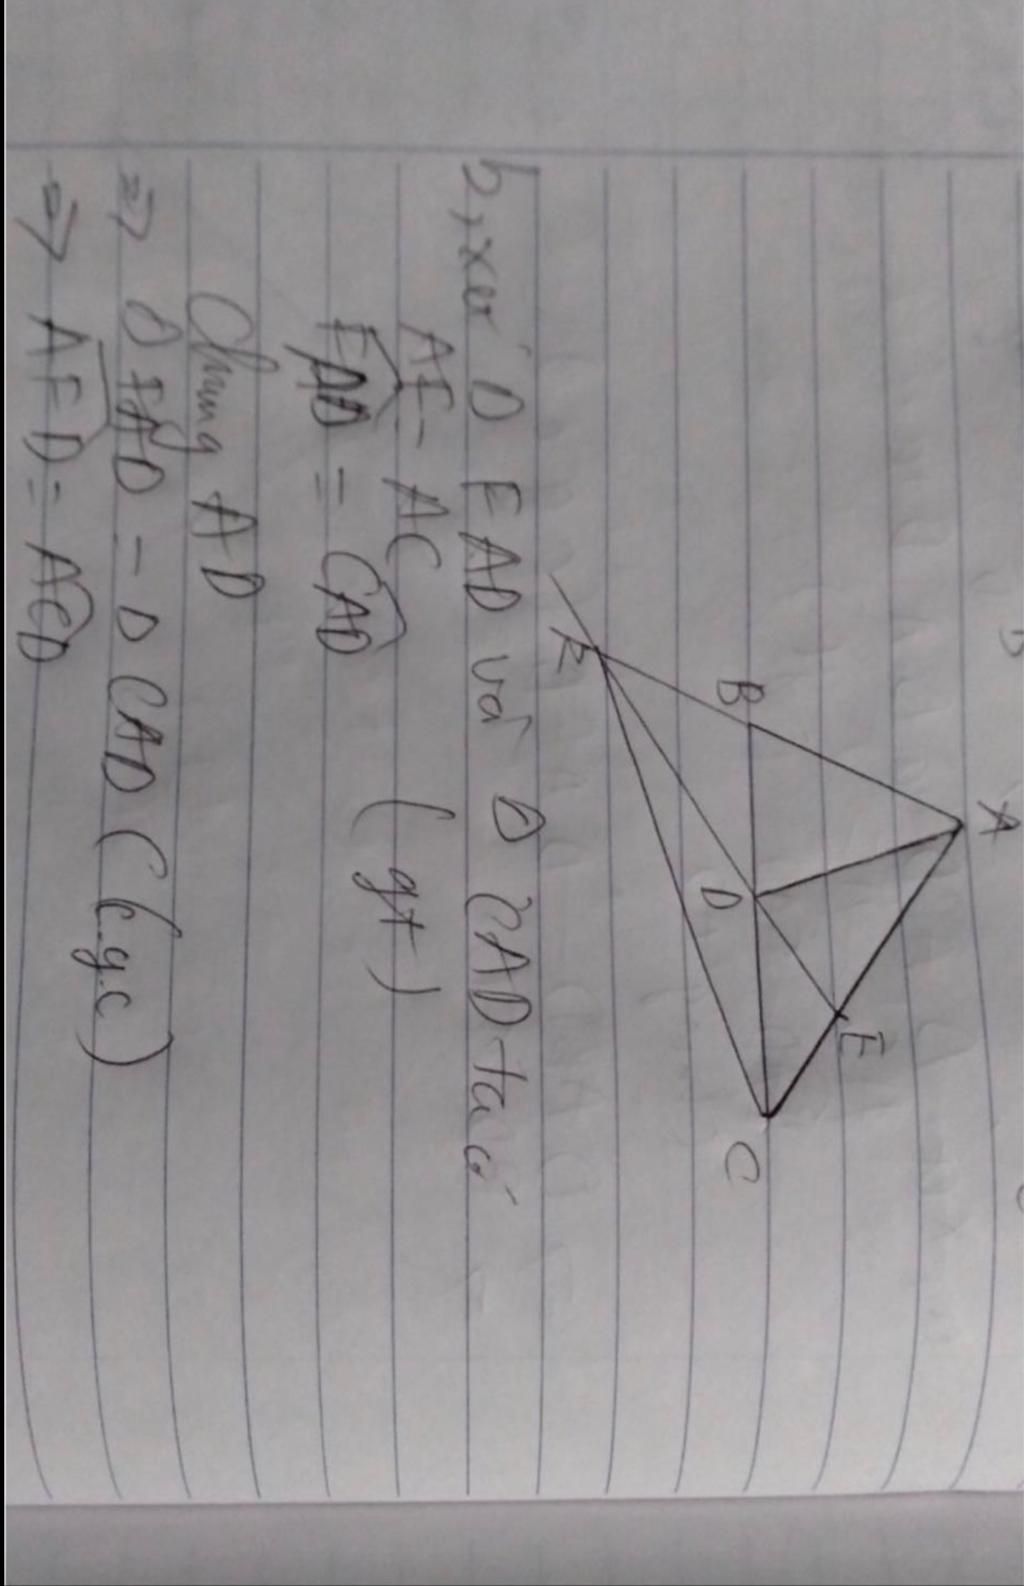 A
B
E
D
C
b, xét Δ FAD và Δ CAD ta có
AF = AC (gt)
FAD = CAD
Chung AD
=> Δ FAD = Δ CAD (c.g.c)
=> AFD = ACD